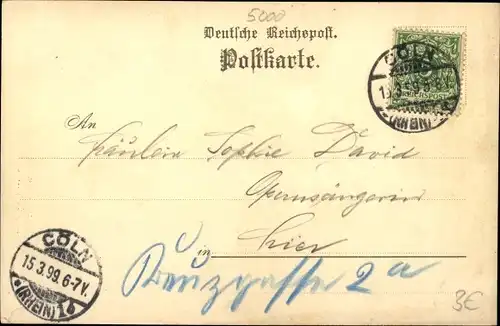 5000
Deutsche Reichspost.
Postkarte.
CÖLN
15.3.99.6-7V.
(RHEIN) 1d
An
Fräulein Sophie David
Opernsängerin
in hier
Kreuzgasse 2a
CÖLN
15.3.99.6-7V.
(RHEIN) 1d
3€